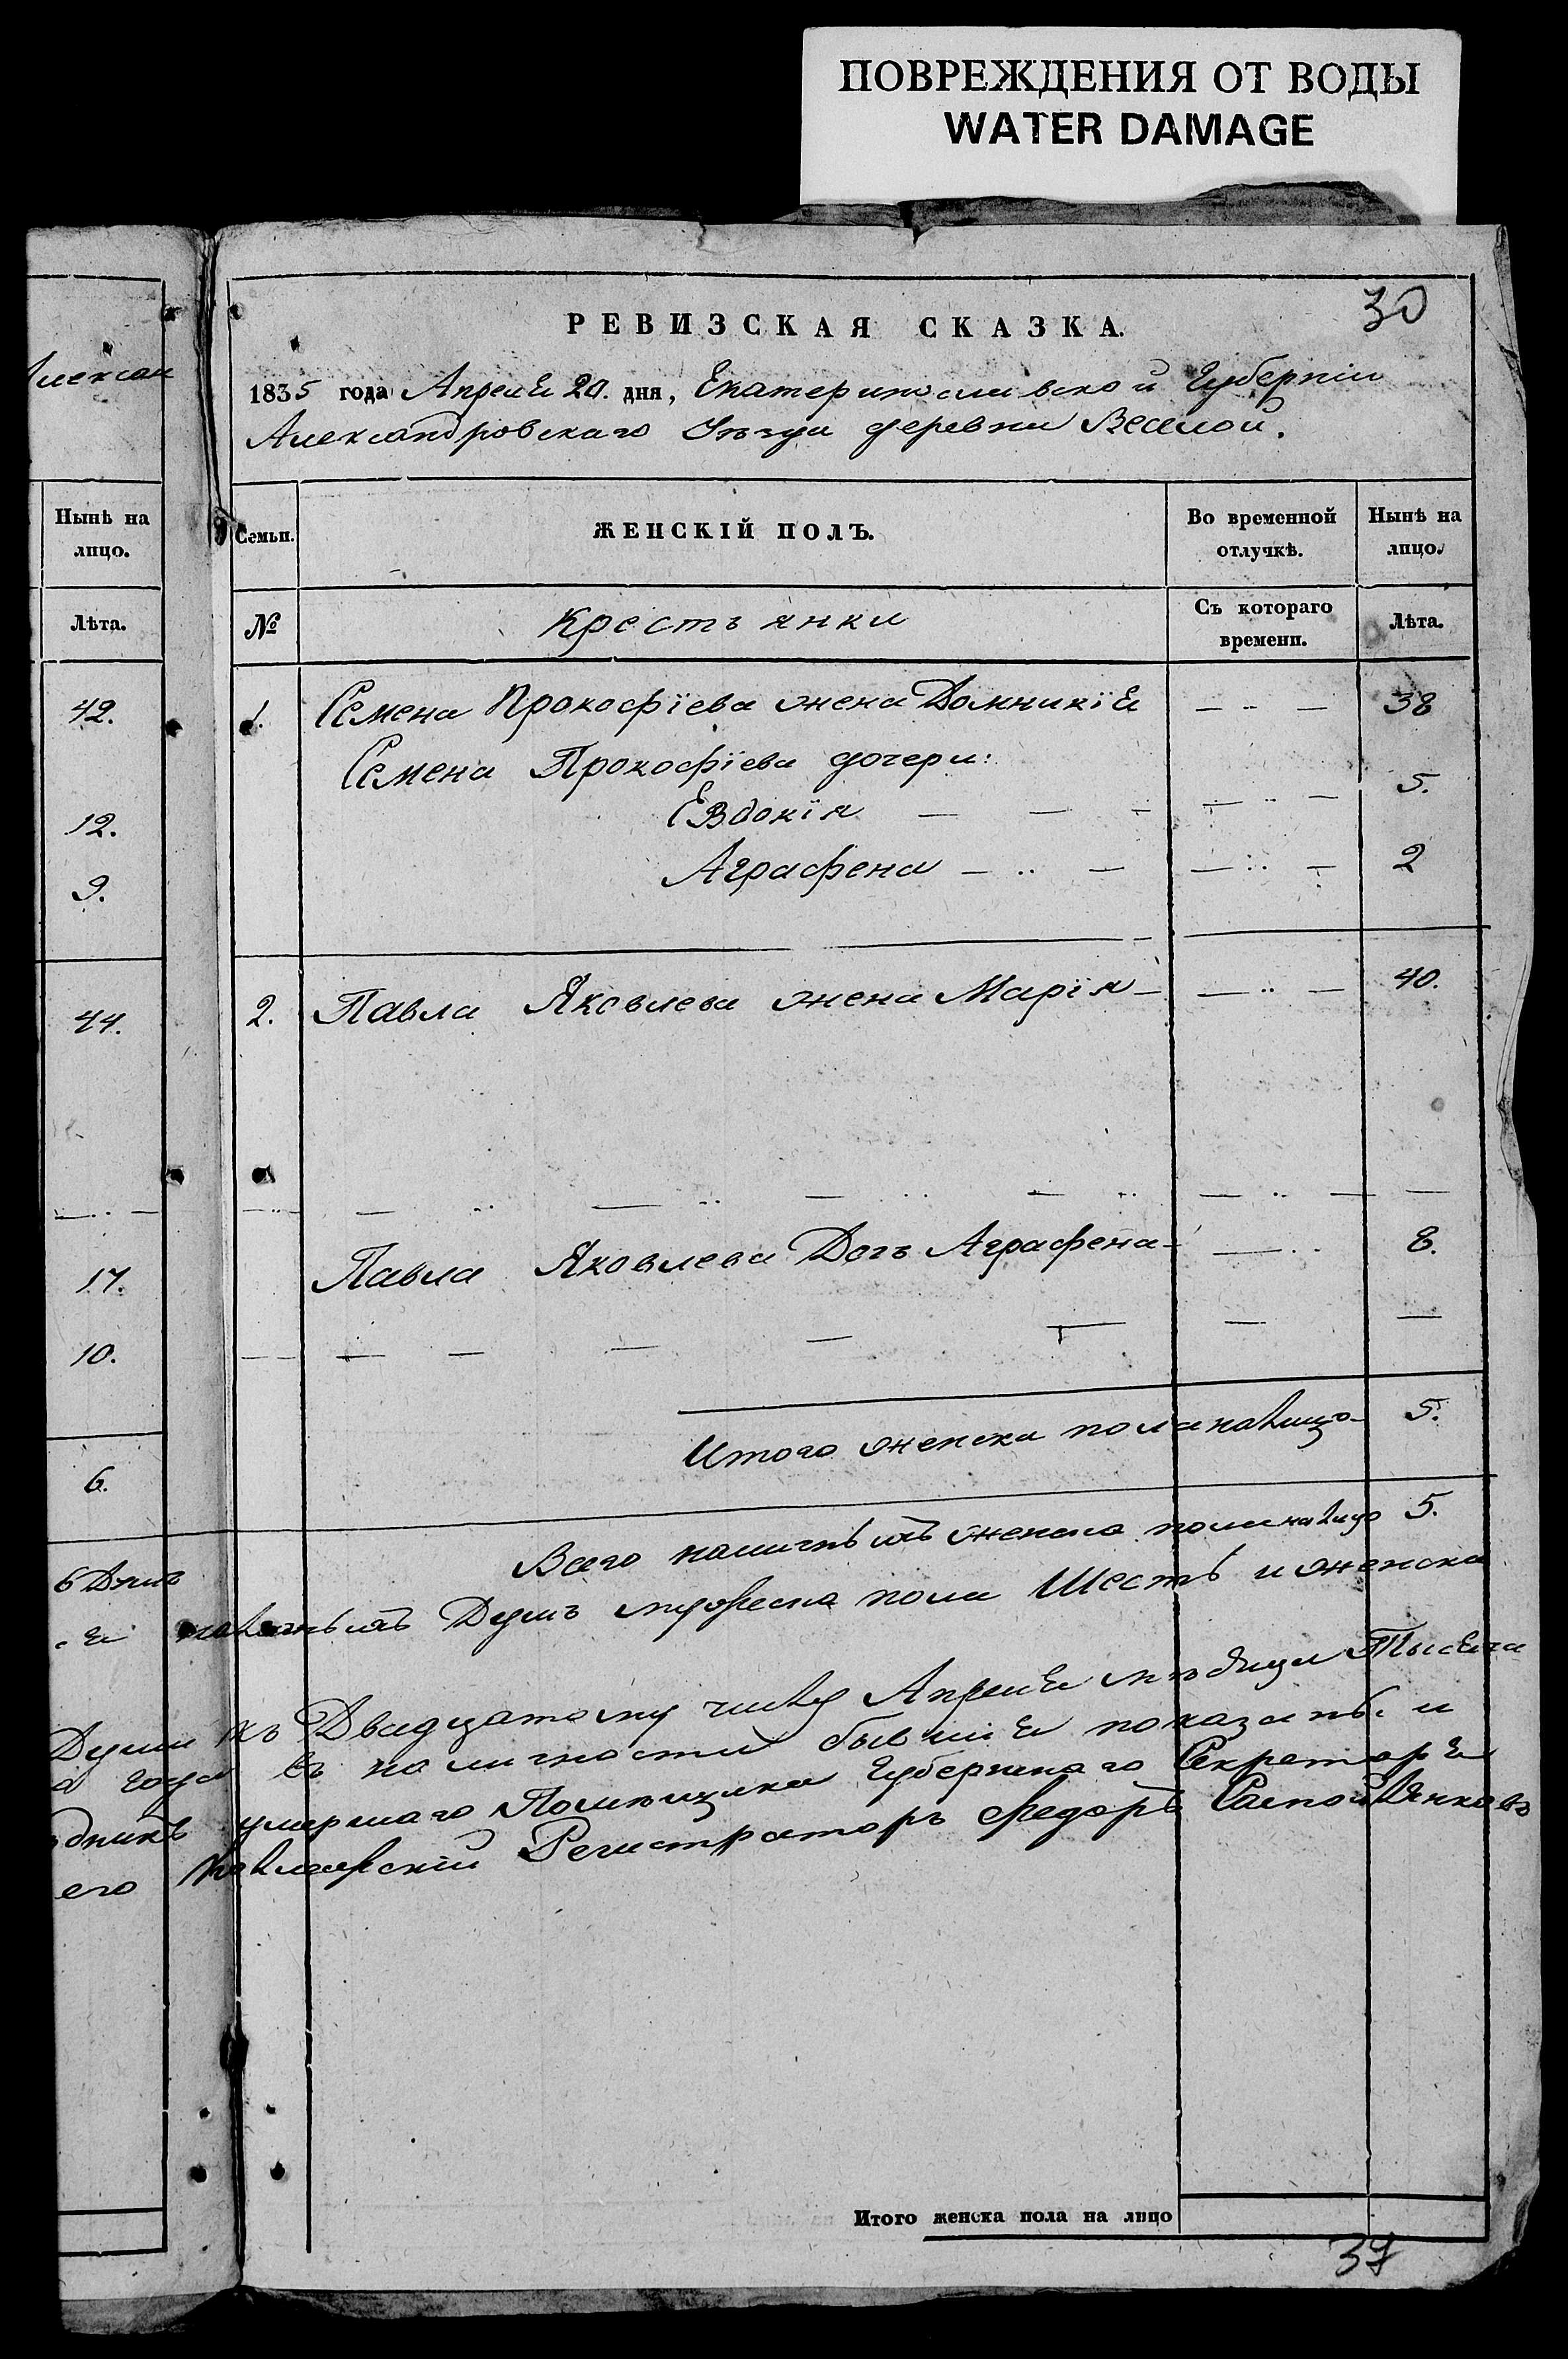 ПОВРЕЖДЕНИЯ ОТ ВОДЫ
WATER DAMAGE
30
РЕВИЗСКАЯ СКАЗКА.
1835 года Апреля 20. дня, Екатеринославской Губерніи
Александровскаго Уѣзда деревни Веселой.
Алексан
Нынѣ на
лицо.
Лѣта.
42.
12.
9.
44.
17.
10.
6.
Семьи. ЖЕНСКІЙ ПОЛЪ. Во временной отлучкѣ. Нынѣ на лицо.
№ Крестьянки Съ котораго времени. Лѣта.
1. Семена Прокофіева жена Домникія — 38
Семена Прокофіева дочери:
Евдокія — 5.
Аграфена — 2
2. Павла Яковлева жена Марія — 40.
Павла Яковлева Дочь Аграфена — 8.
Итого женска пола налицо — 5.
Всего наличныхъ женска пола налицо 5.
наличныхъ Душъ мужеска пола Шесть и женска
Души къ Двадцатому числу Апреля мѣсяца Тысяча
года въ наличности бывшія показаны. и
умершаго Помѣщика Губернскаго Секретаря
его Коллежскій Регистраторъ Федоръ
Итого женска пола на лицо
37